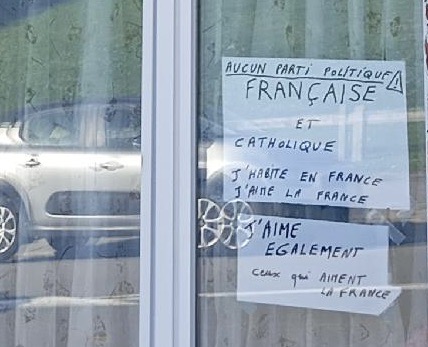 AUCUN PARTI POLITIQUE
FRANÇAISE
ET
CATHOLIQUE
J'HABITE EN FRANCE
J'AIME LA FRANCE
J'AIME
EGALEMENT
ceux qui AIMENT
LA FRANCE